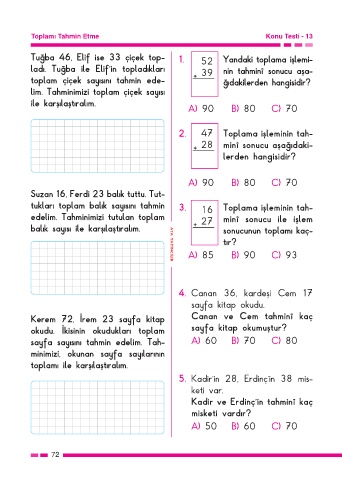 Toplamı Tahmin Etme
Konu Testi - 13
Tuğba 46, Elif ise 33 çiçek top-
ladı. Tuğba ile Elif'in topladıkları
toplam çiçek sayısını tahmin ede-
lim. Tahminimizi toplam çiçek sayısı
ile karşılaştıralım.
Suzan 16, Ferdi 23 balık tuttu. Tut-
tukları toplam balık sayısını tahmin
edelim. Tahminimizi tutulan toplam
balık sayısı ile karşılaştıralım.
Kerem 72, İrem 23 sayfa kitap
okudu. İkisinin okudukları toplam
sayfa sayısını tahmin edelim. Tah-
minimizi, okunan sayfa sayılarının
toplamı ile karşılaştıralım.
1. 52
+ 39
Yandaki toplama işlemi-
nin tahminî sonucu aşa-
ğıdakilerden hangisidir?
A) 90 B) 80 C) 70
2. 47
+ 28
Toplama işleminin tah-
minî sonucu aşağıdaki-
lerden hangisidir?
A) 90 B) 80 C) 70
3. 16
+ 27
Toplama işleminin tah-
minî sonucu ile işlem
sonucunun toplamı kaç-
tır?
A) 85 B) 90 C) 93
4. Canan 36, kardeşi Cem 17
sayfa kitap okudu.
Canan ve Cem tahminî kaç
sayfa kitap okumuştur?
A) 60 B) 70 C) 80
5. Kadir'in 28, Erdinç'in 38 mis-
keti var.
Kadir ve Erdinç'in tahminî kaç
misketi vardır?
A) 50 B) 60 C) 70
72